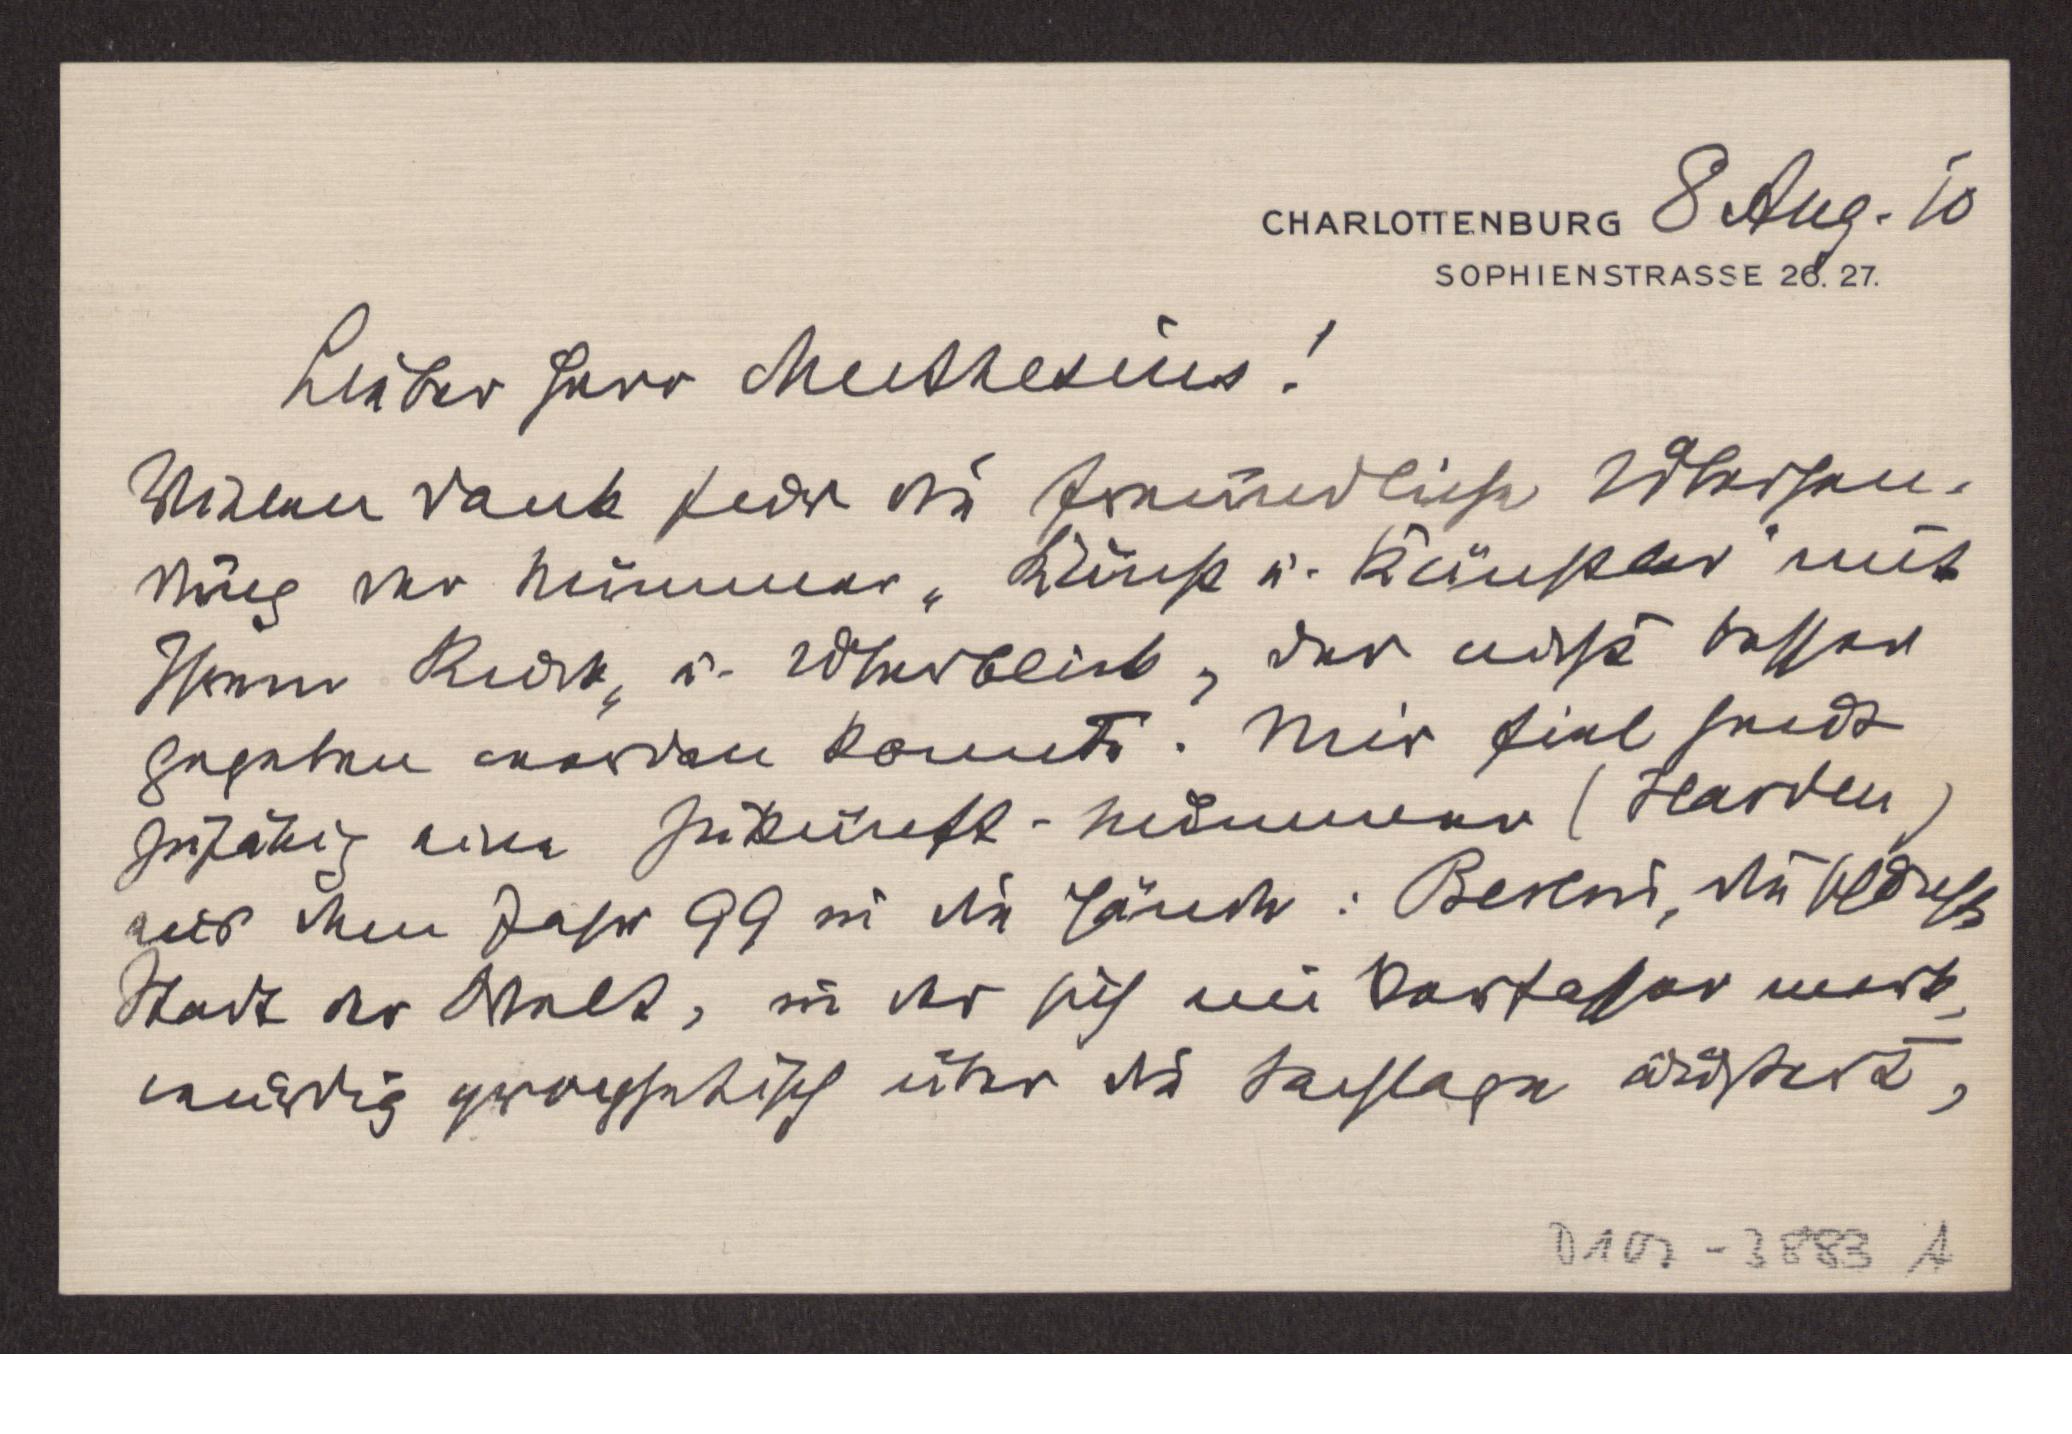 CHARLOTTENBURG 8 Aug. 10
SOPHIENSTRASSE 26. 27.
Lieber Herr Muthesius!
Vielen Dank fuer die freundliche Uebersen-
dung der Nummer „Kunst u. Künstler" mit
Ihrem Rück- u. Ueberblick, der nicht besser
gegeben werden konnte. Mir fiel heut
zufällig eine Zukunft-Nummer (Harden)
aus dem Jahr 99 in die Hände: Berlin, die
Stadt der Welt, in der sich ein Verfasser merk-
würdig prophetisch über die äußert,
D107-3883 A